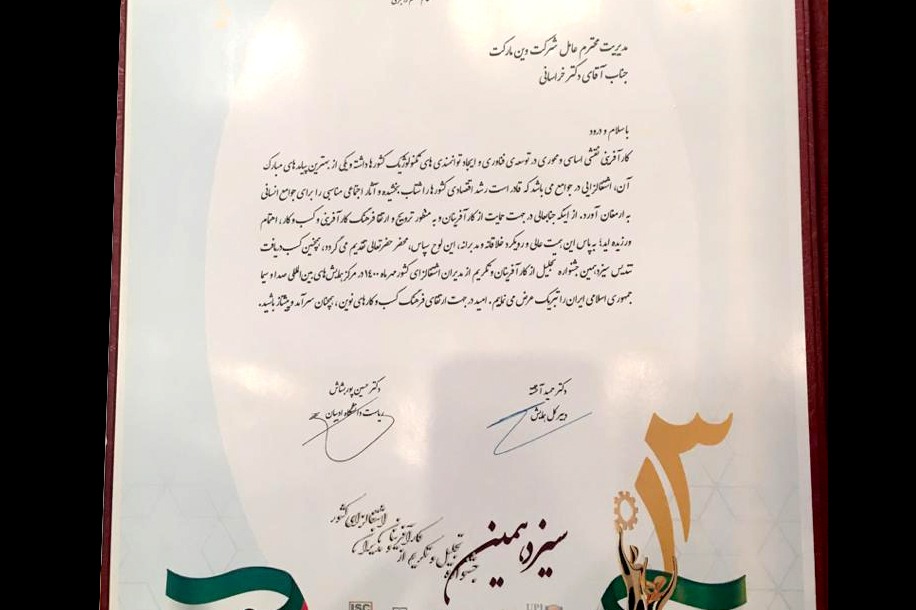 مدیریت محترم عامل شرکت وین مارکت
جناب آقای دکتر خراسانی
با سلام و درود
کارآفرینی نقشی اساسی و محوری در توسعه‌ی فناوری و ایجاد توانمندی های تکنولوژیک کشورها داشته و یکی از بهترین پیامدهای مبارک
آن، اشتغالزایی در جوامع می باشد که قادر است رشد اقتصادی کشورها را شتاب بخشیده و آثار اجتماعی مناسبی را برای جوامع انسانی
به ارمغان آورد. از اینکه جنابعالی در جهت حمایت از کارآفرینان و به منظور ترویج و ارتقا فرهنگ کارآفرینی و کسب و کار، اهتمام
ورزیده اید؛ به پاس این همت عالی و رویکرد خلاقانه و مدبرانه، این لوح سپاس، محضر حضرتعالی تقدیم می گردد، همچنین کسب دریافت
تندیس سیزدهمین جشنواره تجلیل از کارآفرینان و تکریم از مدیران اشتغالزای کشور مهرماه ۱۴۰۰ در مرکز همایش‌های بین المللی صدا و سیما
جمهوری اسلامی ایران را تبریک عرض می نماییم. امید در جهت ارتقای فرهنگ کسب و کارهای نوین، همچنان سرآمد و پیشتاز باشید.
دکتر حسین پورشاش
ریاست دانشگاه ادیبان
دکتر حمید آخته
دبیر کل همایش
۱۳
سیزدهمین
جشنواره تجلیل و تکریم از
کارآفرینان و مدیران
اشتغالزای کشور
ISC
UPI